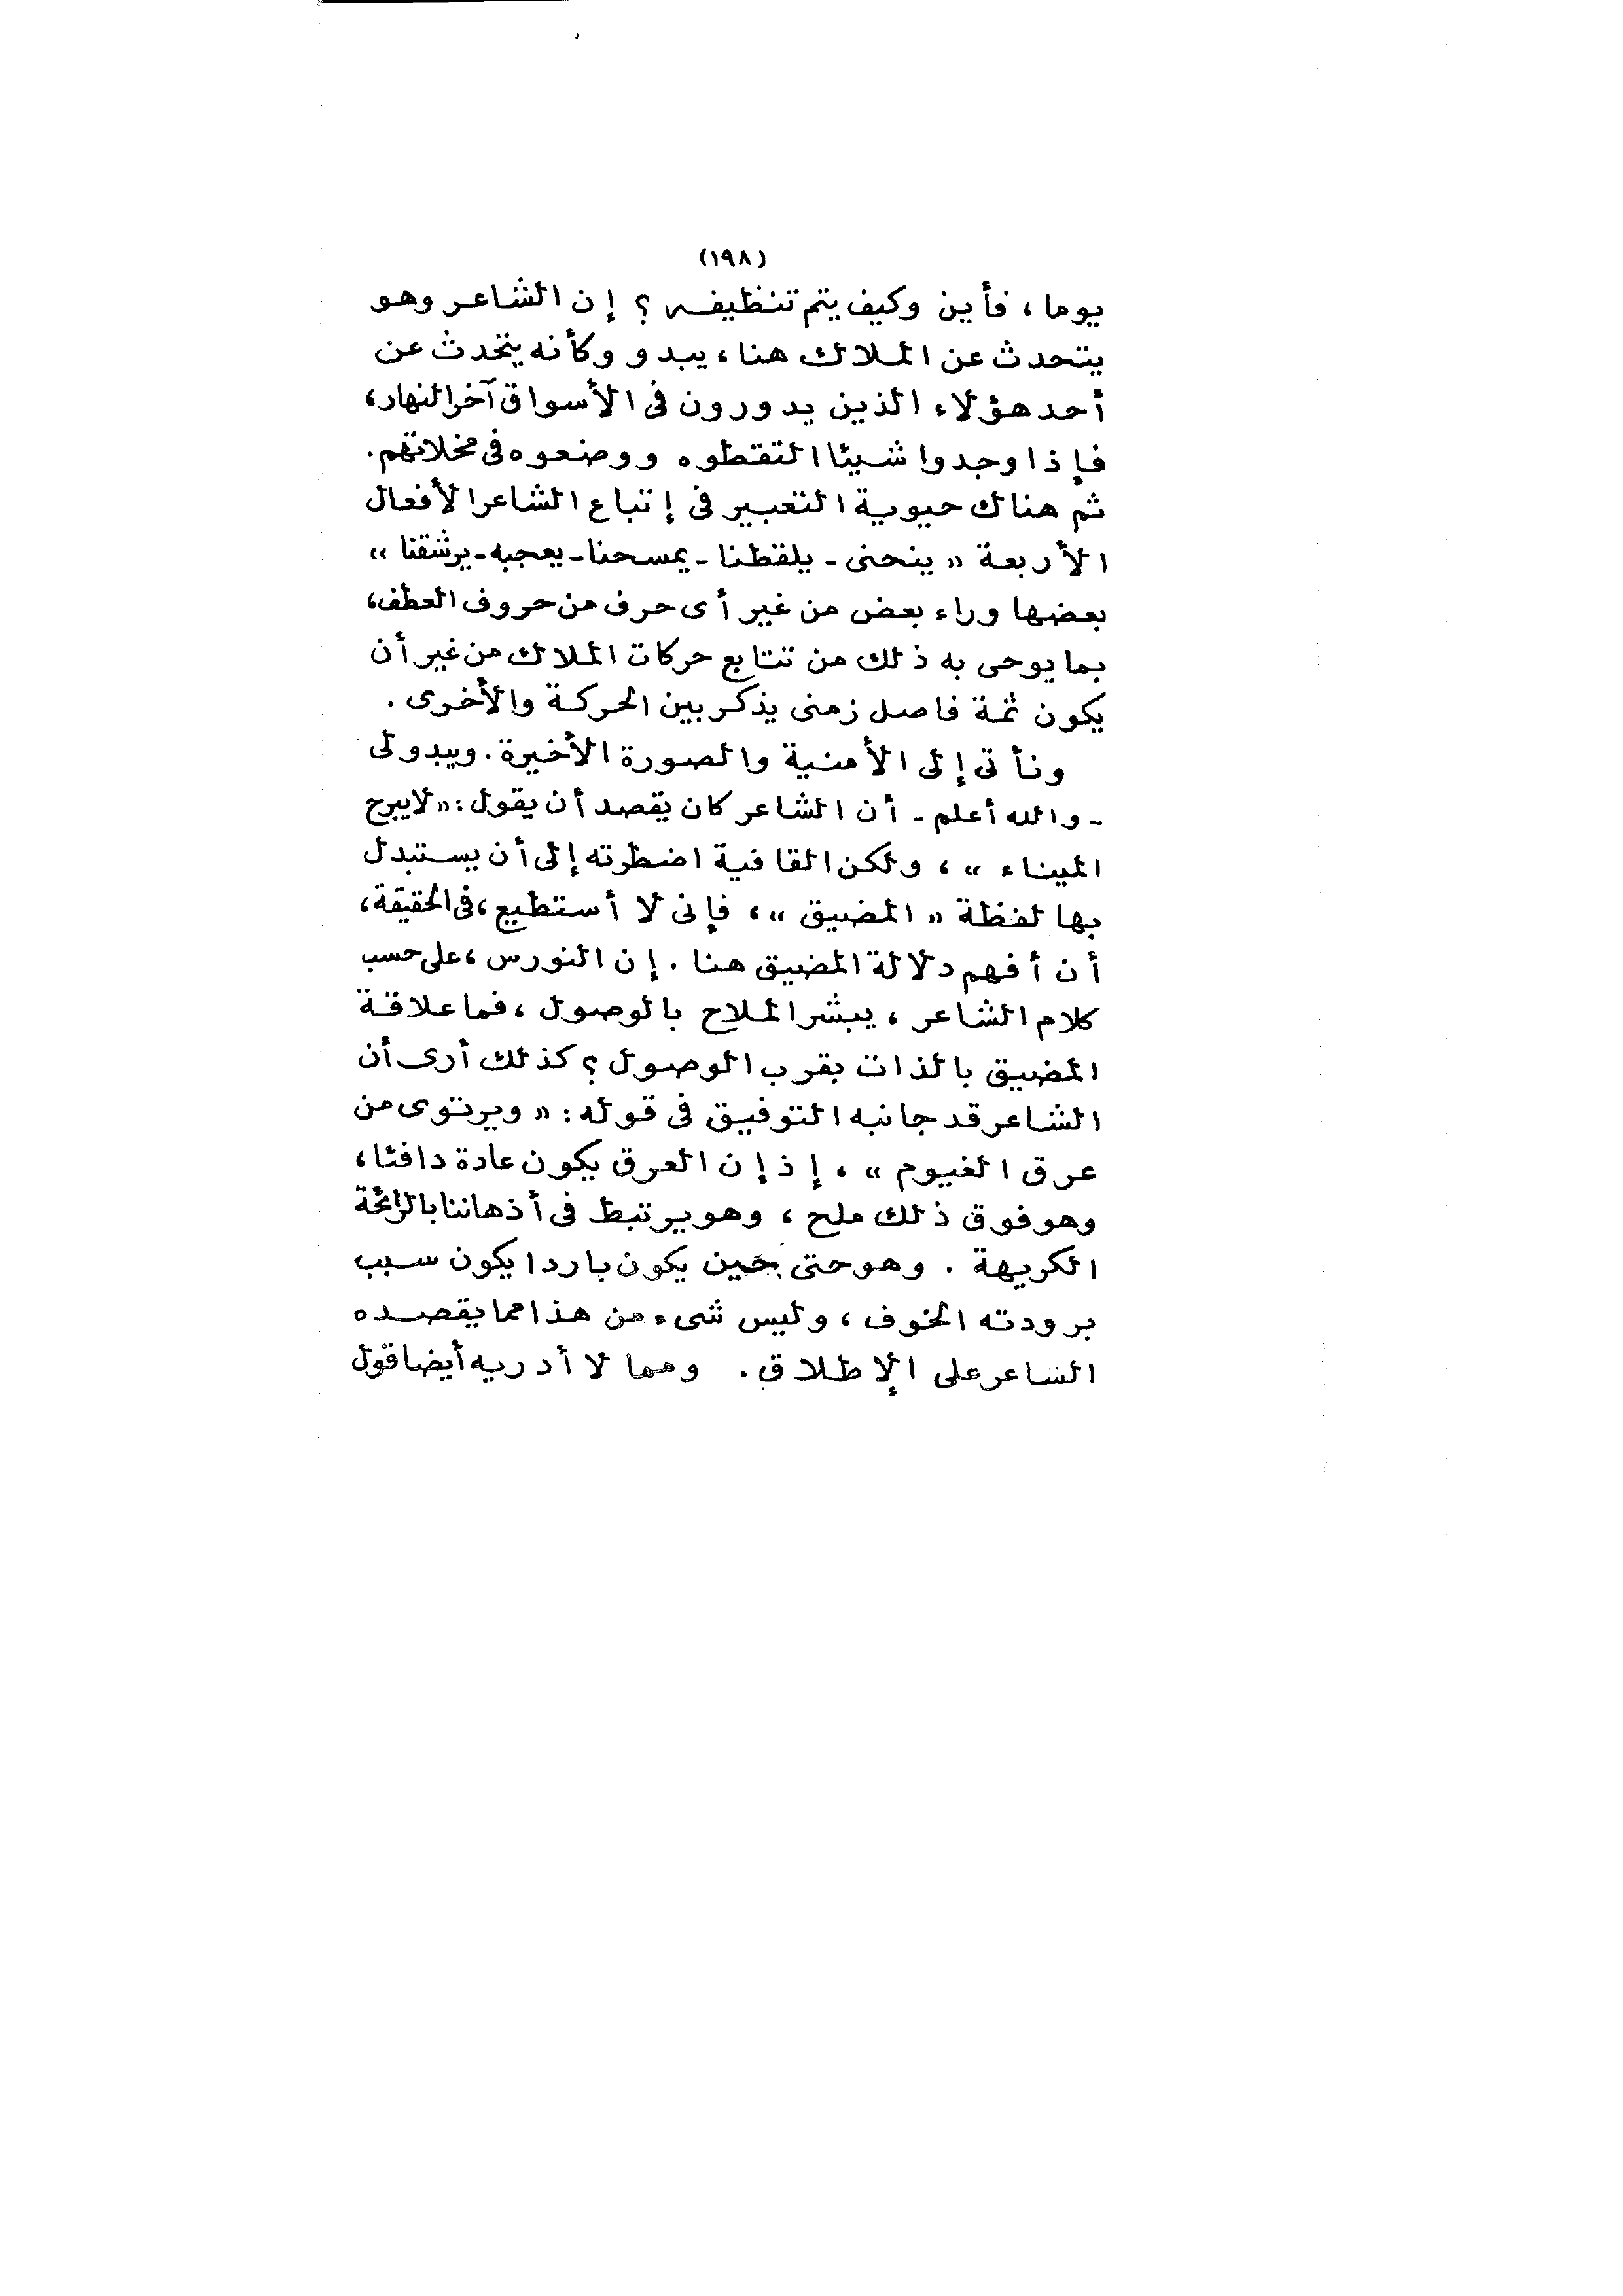 (١٩٨)
يوما، فأين وكيف يتم تنظيفه ؟ إن الشاعر وهو
يتحدث عن الملاك هنا، يبدو وكأنه يتحدث عن
أحد هؤلاء الذين يدورون فى الأسواق آخر النهار،
فإذا وجدوا شيئا التقطوه ووضعوه فى مخلاتهم.
ثم هناك حيوية التعبير فى إتباع الشاعر الأفعال
الأربعة « ينحنى - يلقطنا - يمسحنا - يعجبه - يرشقنا »
بعضها وراء بعض من غير أى حرف من حروف العطف،
بما يوحى به ذلك من تتابع حركات الملاك من غير أن
يكون ثمة فاصل زمنى يذكر بين الحركة والأخرى .
ونأتى إلى الأمنية والصورة الأخيرة. ويبدو لى
- والله أعلم - أن الشاعر كان يقصد أن يقول : « لا يبرح
الميناء » ، ولكن القافية اضطرته إلى أن يستبدل
بها لفظة « المضيق » ، فإنى لا أستطيع ، فى الحقيقة ،
أن أفهم دلالة المضيق هنا . إن النورس ، على حسب
كلام الشاعر ، يبشر الملاح بالوصول ، فما علاقة
المضيق بالذات بقرب الوصول ؟ كذلك أرى أن
الشاعر قد جانبه التوفيق فى قوله : « ويرتوى من
عرق الغيوم » ، إذ إن العرق يكون عادة دافئا ،
وهو فوق ذلك ملح ، وهو يرتبط فى أذهاننا بالرائحة
الكريهة . وهو حتى حين يكون باردا يكون سبب
برودته الخوف ، وليس شىء من هذا مما يقصده
الشاعر على الإطلاق . ومما لا أدريه أيضا قول